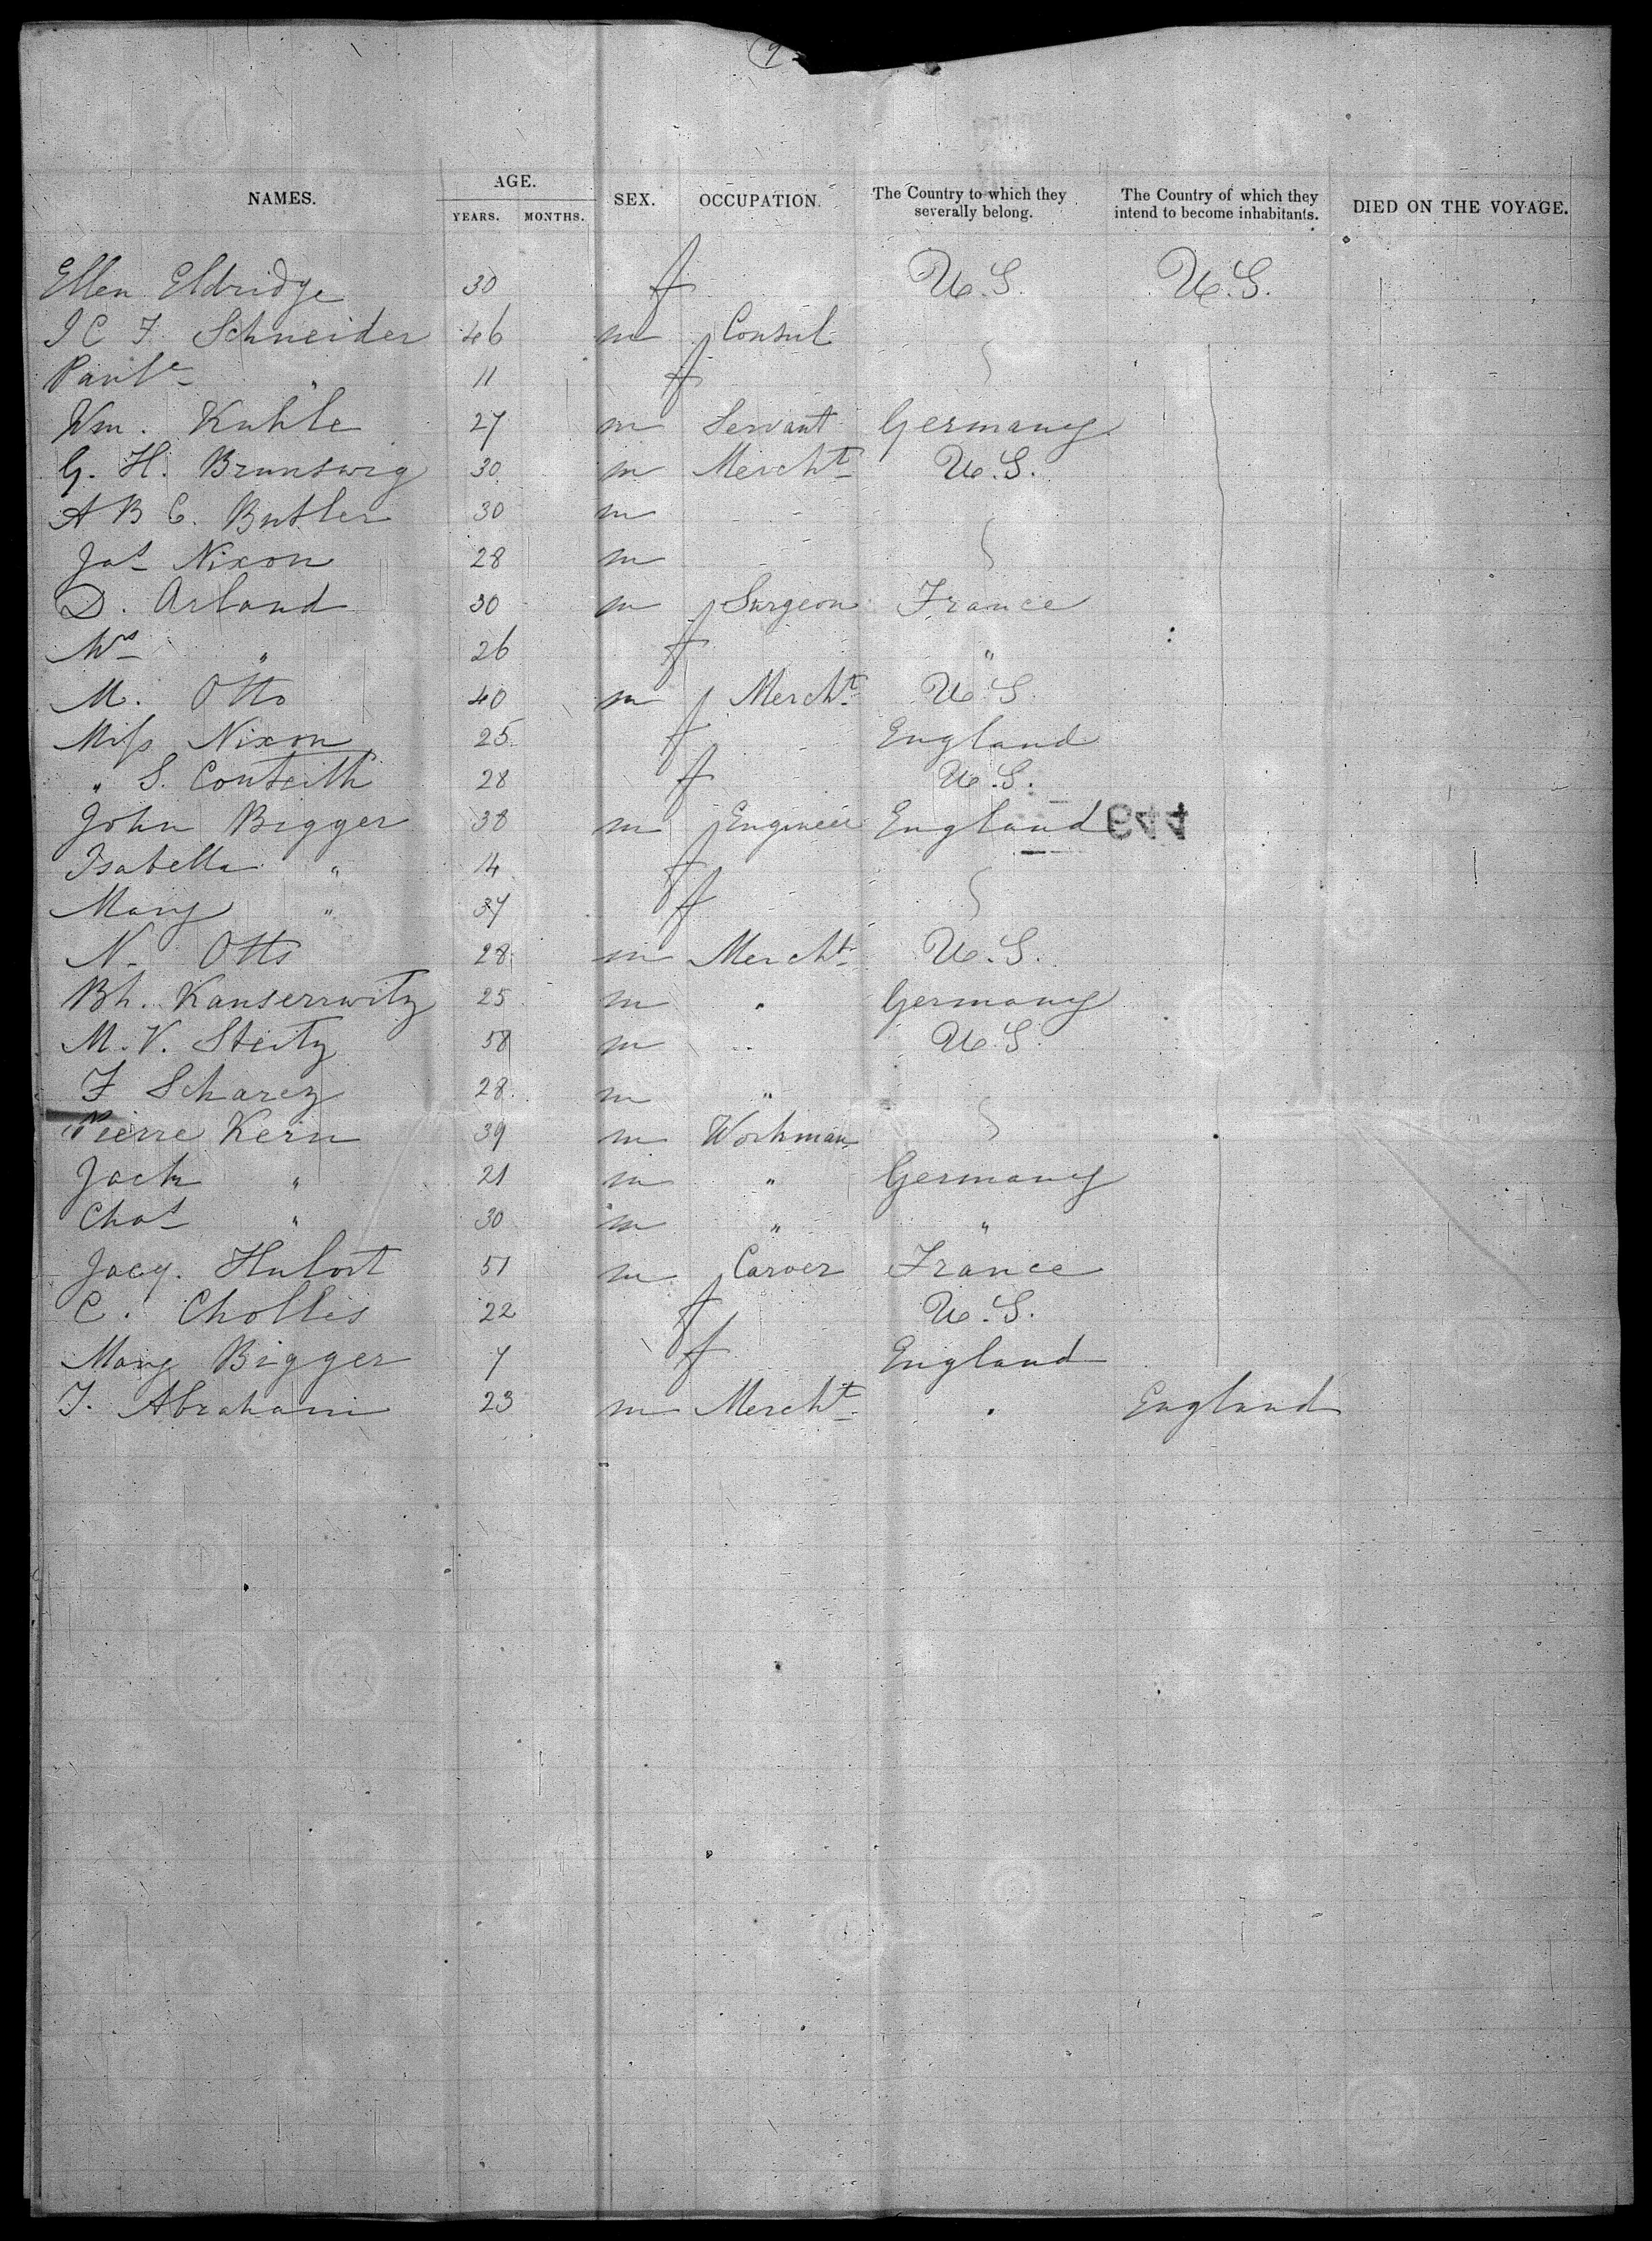 9
NAMES. AGE. YEARS. MONTHS. SEX. OCCUPATION. The Country to which they severally belong. The Country of which they intend to become inhabitants. DIED ON THE VOYAGE.
Ellen Eldridge 30 f U.S. U.S.
J C F Schneider 46 m Consul
" 11 f
Wm. Kuhle 27 m Servant Germany
G. H. Brunswig 30 m Mercht U.S.
A B C. Butler 30 m
Jas Nixon 28 m
D. Arland 30 m Surgeon France
Mrs " 26 f "
M. Otto 40 m Mercht U.S
Miss Nixon 25 f England
" S. Conteith 28 f U.S.
John Bigger 38 m Engineer England
644
Isabella " 14 f
Mary " 37 f
N. Otto 28 m Mercht U.S.
Bh. Kanserrwitz 25 m " Germany
M. V. Steitz 58 m " U.S.
F Scharez 28 m "
Pierre Kern 39 m Workman
Jack " 21 m " Germany
Chas " 30 m " "
Jacq. Hulort 51 m Carver France
C. Chollis 22 f U.S.
Mary Bigger 7 f England
J. Abraham 23 m Mercht " England